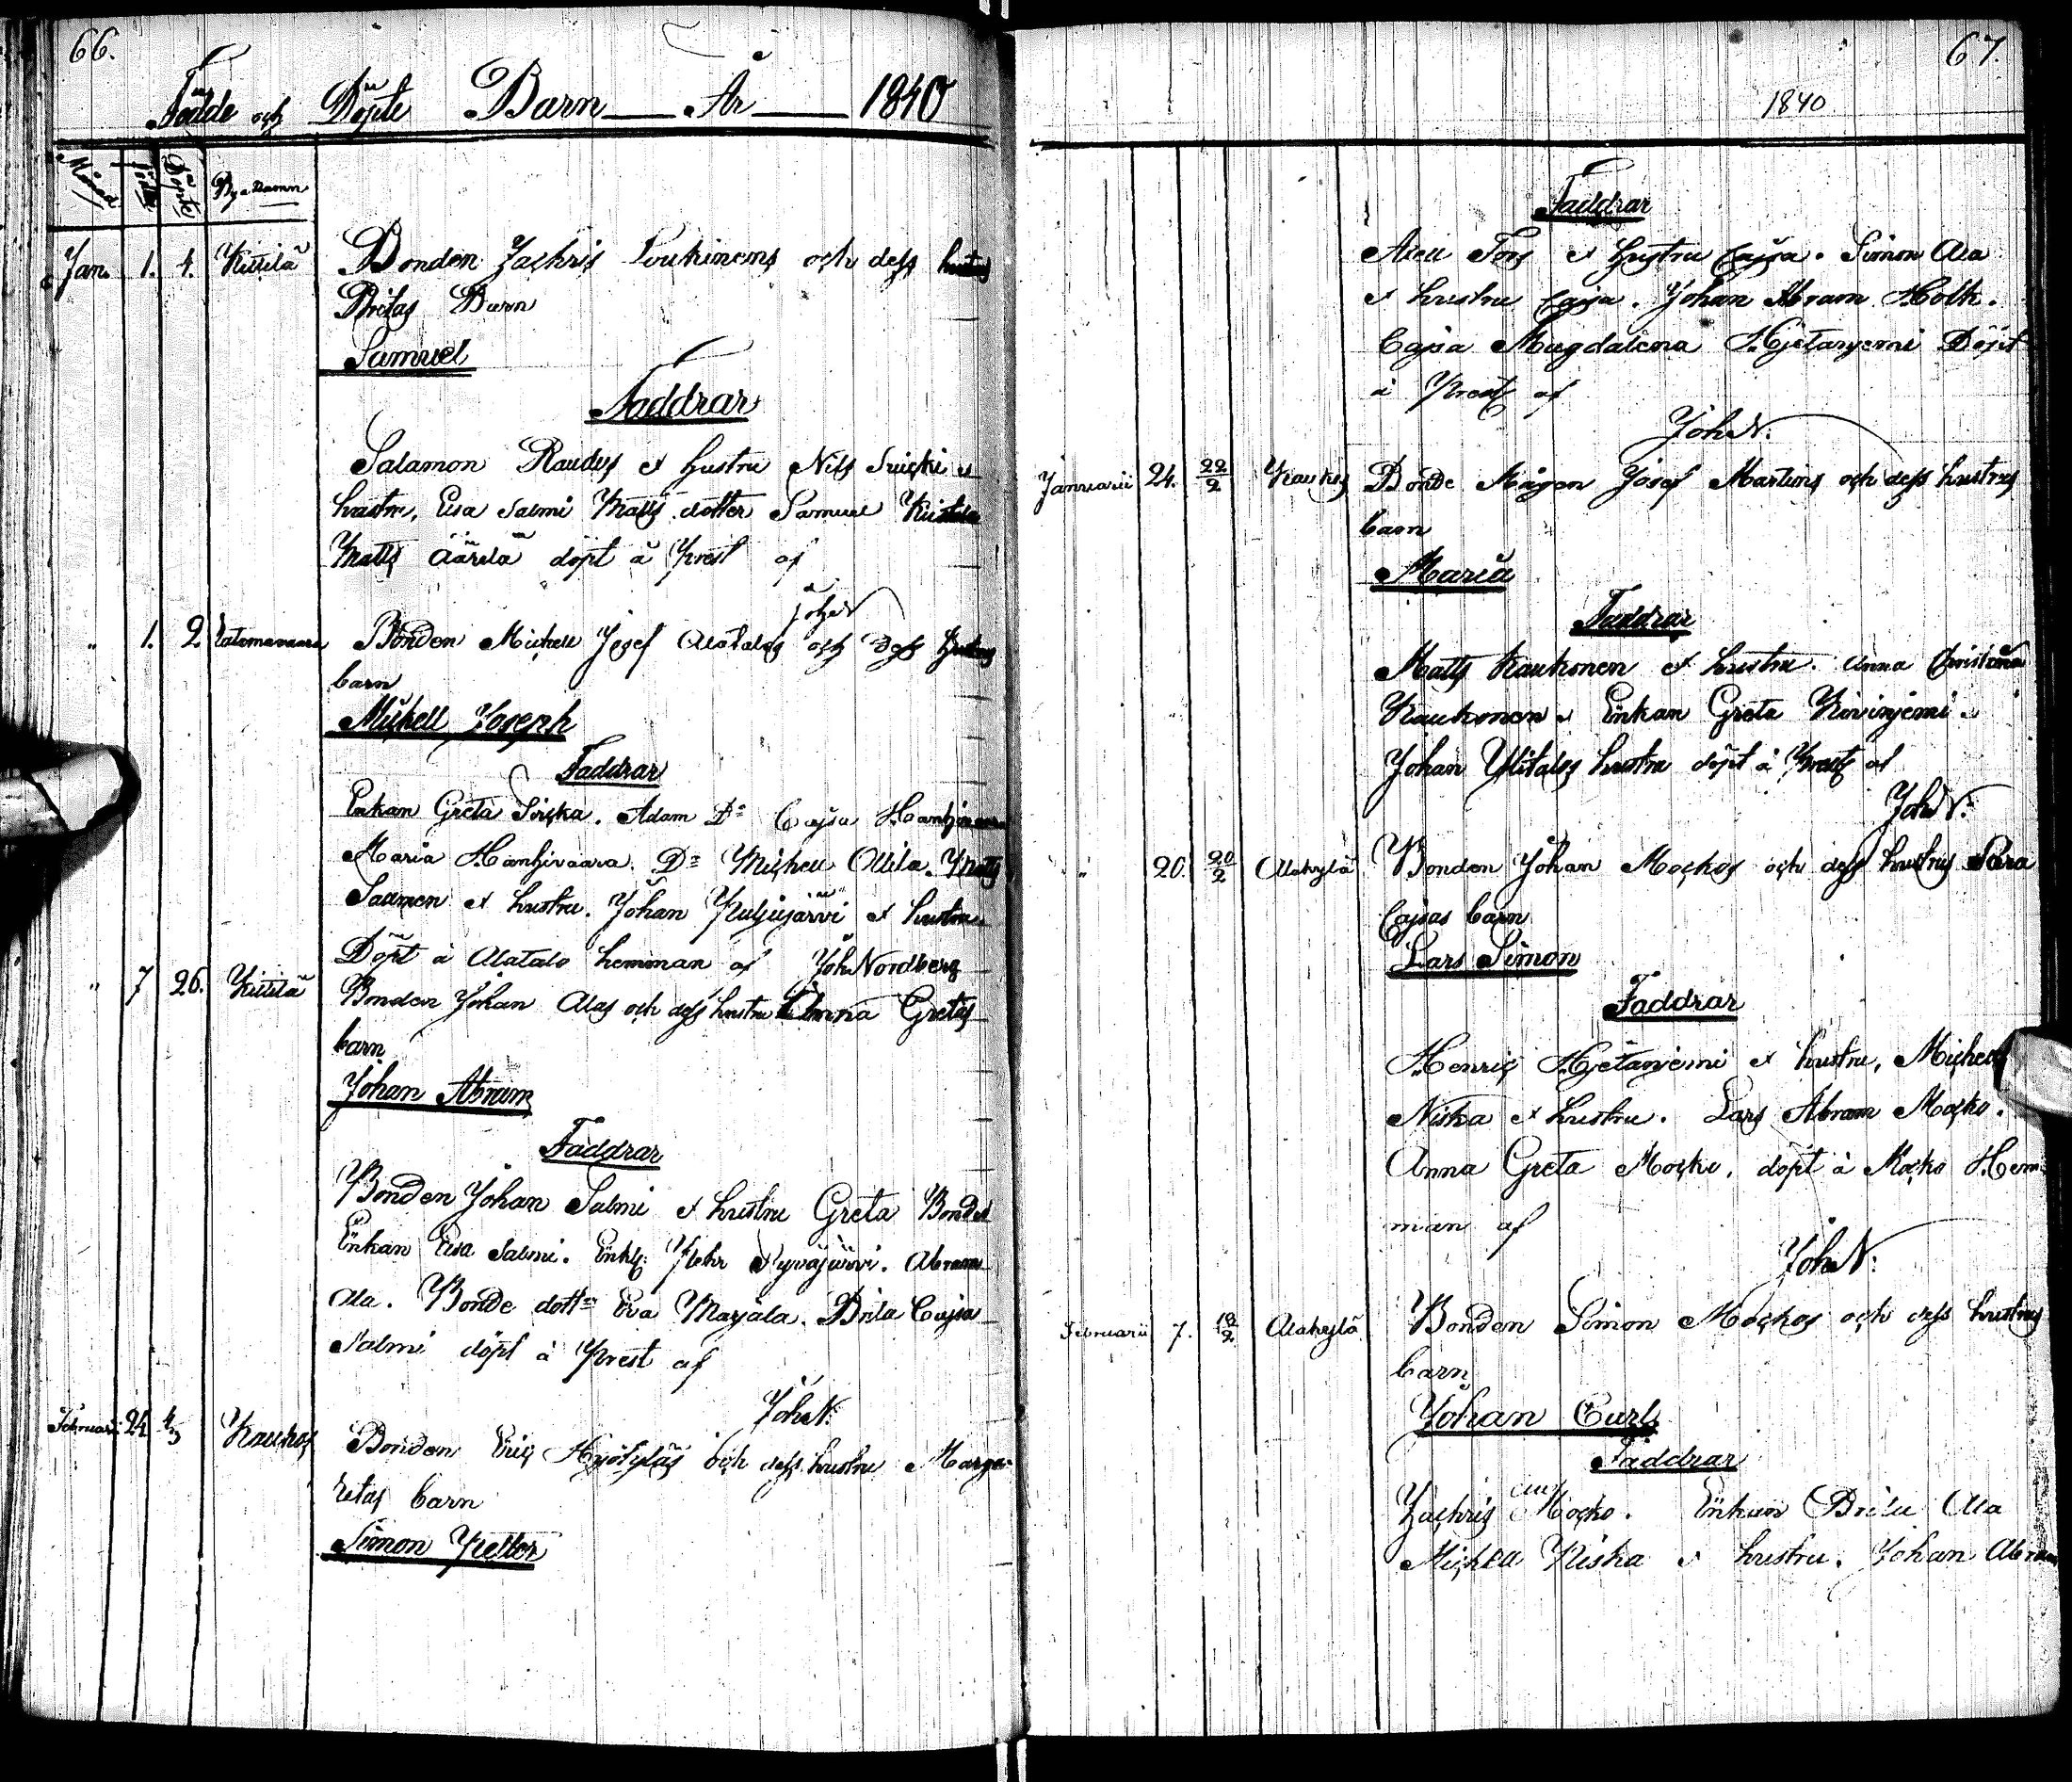 66.
Födde och Döpte Barn År 1840
Månad Födde Döpte Bya Namn
Jan. 1. 4. Kittilä Bonden Zachris Poukinens och dess hustrus
Britas Barn
Samuel
Faddrar
Salamon Raudus et Hustru Nils Suicki et
hustru, Eisa Salmi Matts dotter Samuel
Matts Äärelä döpt i Prest af
Joh N
" 1. 2. Bonden Michell Josef Alatalos och dess Hustrus
barn
Michell Joseph
Faddrar
Enkan Greta Sircka. Adam Do Cajsa
Maria Hanhivaara. Do Michell Ollila. Matts
Saamen et hustru. Johan et hustru
Döpt å Alatalo hemman af Joh Nordberg
" 7 26. Kittilä Bonden Johan Alas och dess hustru Anna Gretas
barn
Johan Abram
Faddrar
Bonden Johan Salmi et hustru Greta Bonde
Enkan Eisa Salmi. Enkl: Pehr Syväjärvi. Abram
Ala. Bonde dottr Eva Marjala. Brita Cajsa
Salmi döpt å Prest af
Joh N:
Februari 24 4/3 Kaukos Bonden Eric Hyötyläs och dess hustru Marga-
retas barn
Simon Petter
67.
1840
Faddrar
Fors et Hustru Cajsa. Simon Ala
et hustru Cajsa. Johan Abram Molk.
Cajsa Magdalena Hjetanjemi Döpt
å Prest af
Joh N.
Januarii 24. 22/2 Kaukos Bonde Mågen Josef Martins och dess hustrus
barn
Maria
Faddrar
Matts Kaukonen et hustru. Anna Christina
Kaukonen. Enkan Greta Kivinjemi.
Johan Ylitalos hustru döpt å Prest af
Joh N:
" 20. 20/2 Alakylä Bonden Johan Mockos och dess hustrus Sara
Cajsas barn
Lars Simon
Faddrar
Henric Hjetanjemi et hustru, Michell
Niska et hustru. Lars Abram Mocko.
Anna Greta Mocko. döpt å Mocko Hem-
man af
Joh N:
Februarii 7. 18/2 Alakylä Bonden Simon Mockos och dess hustrus
barn
Johan Carl
Faddrar
Zachris Mocko. Enkan Brita Ala
Michell Niska et hustru. Johan Abram